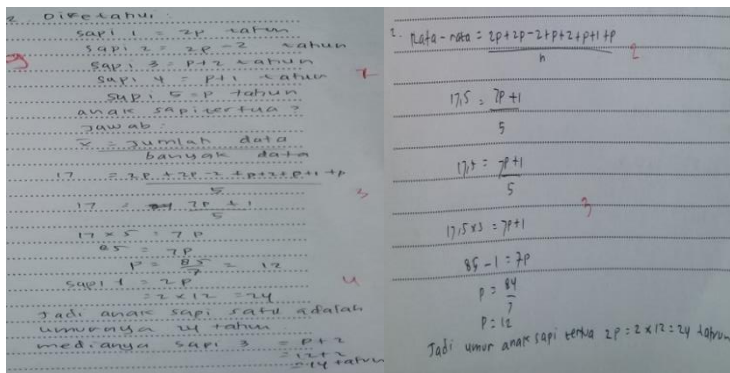 2. Diketahui :
sapi 1 = 2p tahun
sapi 2 = 2p - 2 tahun
sapi 3 = p+2 tahun
sapi 4 = p+1 tahun
sapi 5 = p tahun
anak sapi tertua ?
jawab :
x̄ = Jumlah data
banyak data
17 = 2p + 2p - 2 + p+2 + p+1 + p
5
17 = 7p + 1
5
17 x 5 = 7p
85 = 7p
p = 85 = 12
7
sapi 1 = 2p
= 2 x 12 = 24
Jadi anak sapi satu adalah
umurnya 24 tahun
medianya sapi 3 = p+2
= 12+2
= 14 tahun
3
4
2. Rata-rata = 2p + 2p - 2 + p + 2 + p+1 + p
n
2
17,5 = 7p+1
5
17,5 = 7p+1
5
3
17,5 x 3 = 7p+1
85 - 1 = 7p
p = 84
7
p = 12
Jadi umur anak sapi tertua 2p = 2 x 12 = 24 tahun